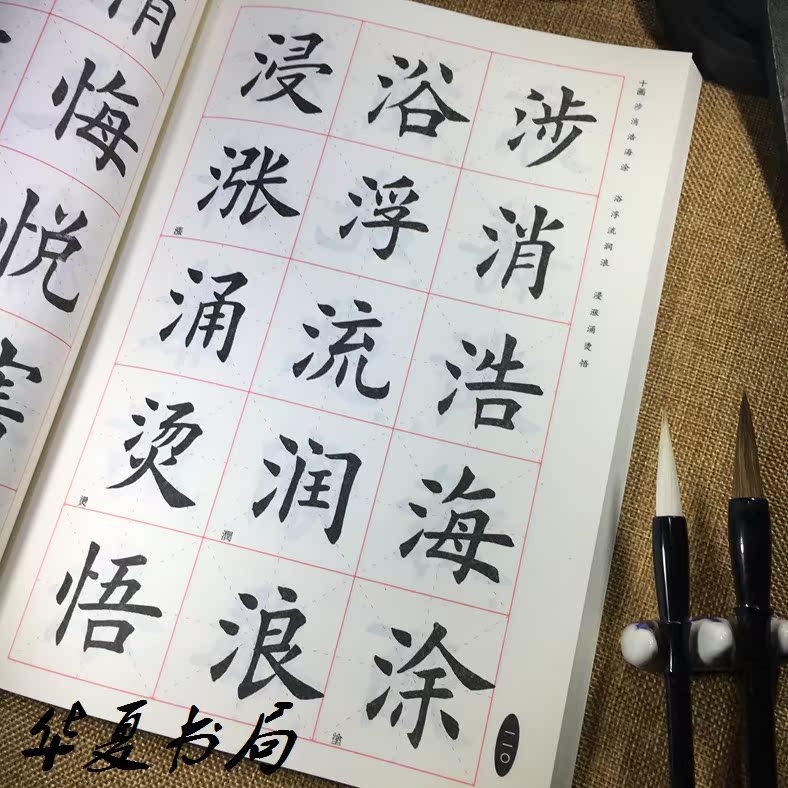 十画 涉消浩海涂 浴浮流润浪 浸涨涌烫悟
涉消浩海涂
塗
浴浮流润浪
潤
浸涨涌烫悟
漲
燙
一一〇
悔悦害
华夏书局